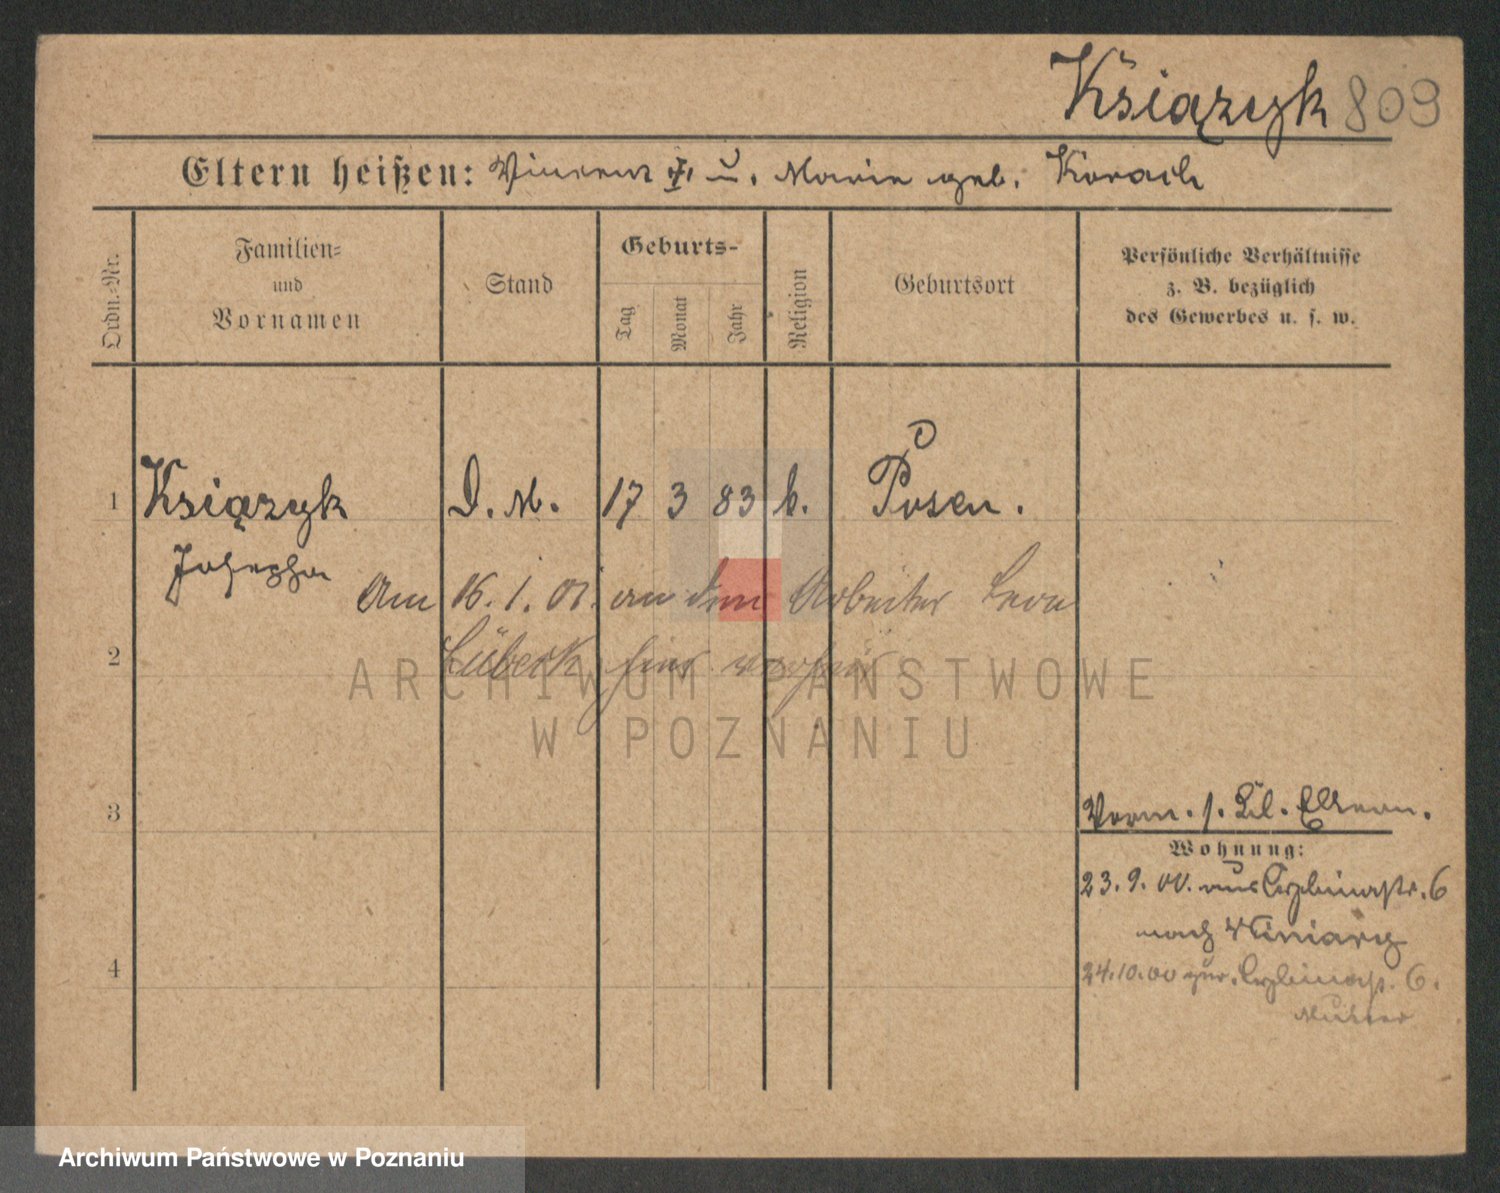 Książyk 809
Eltern heißen: Vincent †, u. Marie geb. Korach
Ordn.-Nr.
Familien-
und
Vornamen
Stand
Geburts-
Tag
Monat
Jahr
Religion
Geburtsort
Persönliche Verhältnisse
z. B. bezüglich
des Gewerbes u. s. w.
1 Książyk D. M. 17 3 83 k. Posen.
Josepha
Am 16. 1. 01. an den Arbeiter Leon
2 Lübeck hier verh.
ARCHIWUM PAŃSTWOWE
W POZNANIU
3 Vorm. s. Bl. Eltern.
Wohnung:
23. 9. 00. aus 6
nach Winiary
4 24.10.00 zur. 6.
Mutter
Archiwum Państwowe w Poznaniu